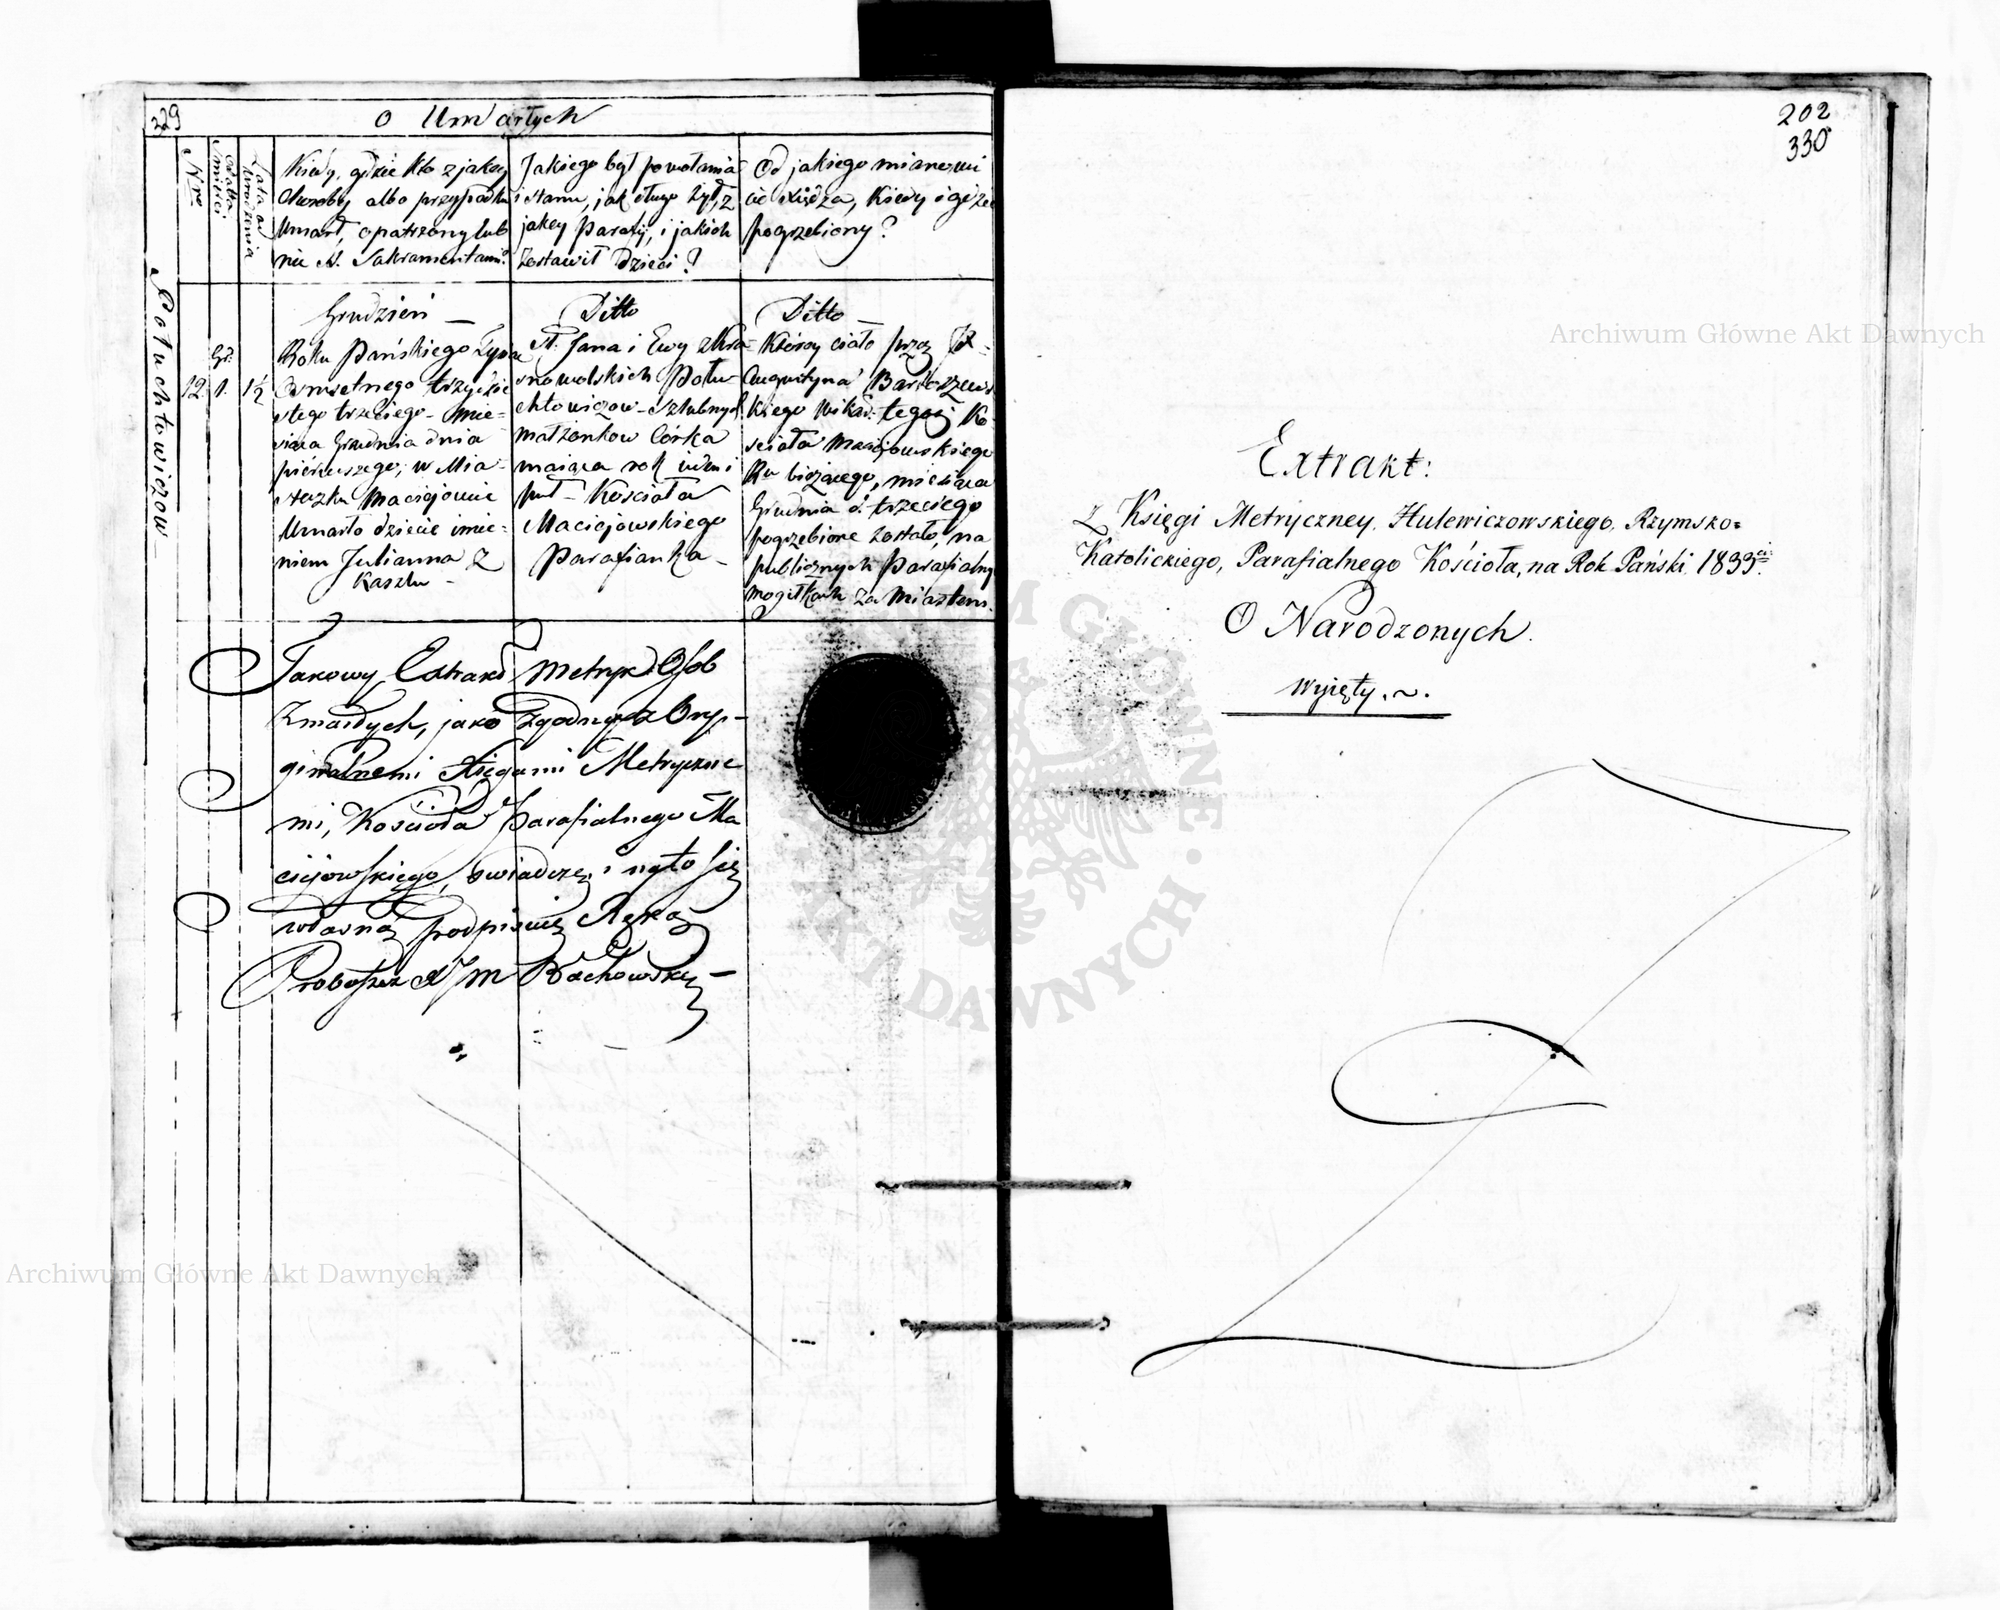 329
O Umarłych
Nro
data śmierci
Lata od urodzenia
Kiedy, gdzie kto z jakiey
choroby albo przypadku
umarł, opatrzony lub
nie S. Sakramentami?
Jakiego był powołania
i stanu, jak długo żył, z
jakey Parafij, i jakich
zostawił Dzieci?
Od jakiego mianowi
cie Xiędza, Kiedy i gdzie
pogrzebiony?
Połuchtowiczow
12.
Gr.
1.
1½
Grudzień
Roku Pańskiego Tysią
Osmsetnego trzydzie
stego trzeciego - Mie=
siąca Grudnia dnia
pierwszego, w Mia-
steczku Maciejowie
Umarło dziecie imie=
niem Julianna Z
Kaszlu -
Ditto
St. Jana i Ewy z Kra=
snowolskich Połu=
chtowiczow - Szlubnych
małżonkow Córka
maiąca rok ieden i
puł - Kościoła
Maciejowskiego
Parafianka -
Ditto -
Którey ciało przez JX
Augustyna Bartoszews
kiego Wikar. tegoż Ko-
scioła Maciejowskiego
Ru bieżącego, miesiąca
Grudnia d. trzeciego
pogrzebione zostało, na
publicznych Parafialny
mogiłkach za Miastem.
Takowy Extrakt Metryk Osob
Zmarłych, jako Zgodny z Ory-
ginalnemi Xięgami Metryczne
mi, Kościoła Parafialnego Ma
ciejowskiego, swiadczę, i na to się
własną podpisuię Ręką
Proboszcz XJM Rachowsky -
202
330
Extrakt:
Z Księgi Metryczney, Hulewiczowskiego, Rzymsko=
Katolickiego, Parafialnego Kościoła, na Rok Pański 1833ci.
O Narodzonych.
Wyięty. ~.
Archiwum Główne Akt Dawnych
Archiwum Główne Akt Dawnych